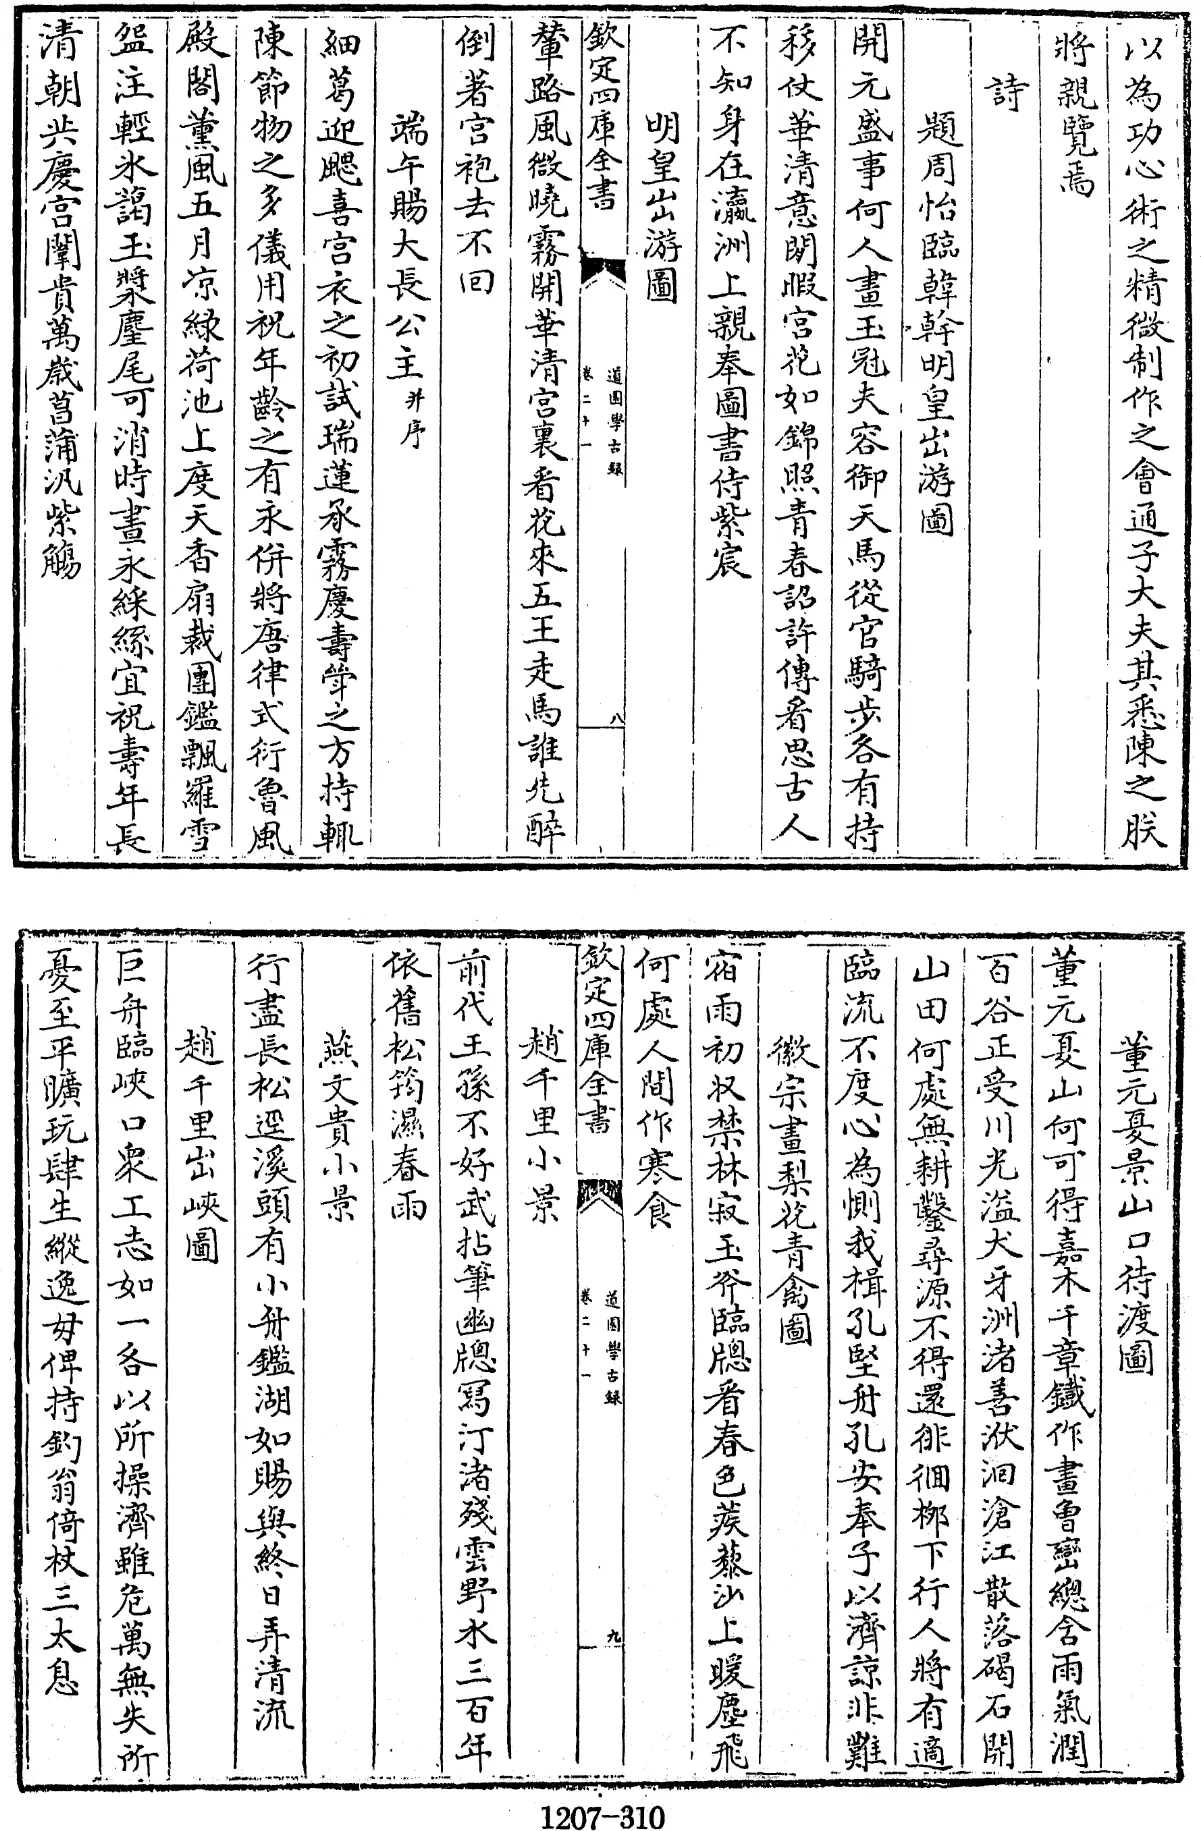 以為功心術之精微制作之會通子大夫其悉陳之朕
將親覽焉
詩
題周怡臨韓幹明皇出游圖
開元盛事何人畫玉冠夫容御天馬從官騎步各有持
移仗華清意閒暇宮花如錦照青春詔許傳看思古人
不知身在瀛洲上親奉圖書侍紫宸
明皇出游圖
欽定四庫全書
道園學古錄
卷二十一
八
輦路風微曉霧開華清宮裏看花來五王走馬誰先醉
倒著宮袍去不回
端午賜大長公主并序
細葛迎颸喜宮衣之初試瑞蓮承露慶壽斝之方持輒
陳節物之多儀用祝年齡之有永併將唐律式衍魯風
殿閣薰風五月凉綠荷池上度天香扇裁團鑑飄羅雪
盌注輕氷藹玉漿麈尾可消時晝永綵絲宜祝壽年長
清朝共慶宮闈貴萬歲菖蒲汎紫觴
董元夏景山口待渡圖
董元夏山何可得嘉木千章鐵作畫曾巒總含雨氣潤
百谷正受川光溢犬牙洲渚善洑洄滄江散落碣石開
山田何處無耕鑿尋源不得還徘徊栁下行人將有適
臨流不度心為惻我楫孔堅舟孔安奉子以濟諒非難
徽宗畫梨花青禽圖
宿雨初收禁林寂玉斧臨牕看春色蒺藜沙上暖塵飛
何處人間作寒食
欽定四庫全書
道園學古錄
卷二十一
九
趙千里小景
前代王孫不好武拈筆幽牕寫汀渚殘雲野水三百年
依舊松筠濕春雨
燕文貴小景
行盡長松逕溪頭有小舟鑑湖如賜與終日弄清流
趙千里出峽圖
巨舟臨峽口衆工志如一各以所操濟雖危萬無失所
憂至平曠玩肆生縱逸毋俾持釣翁倚杖三太息
1207-310